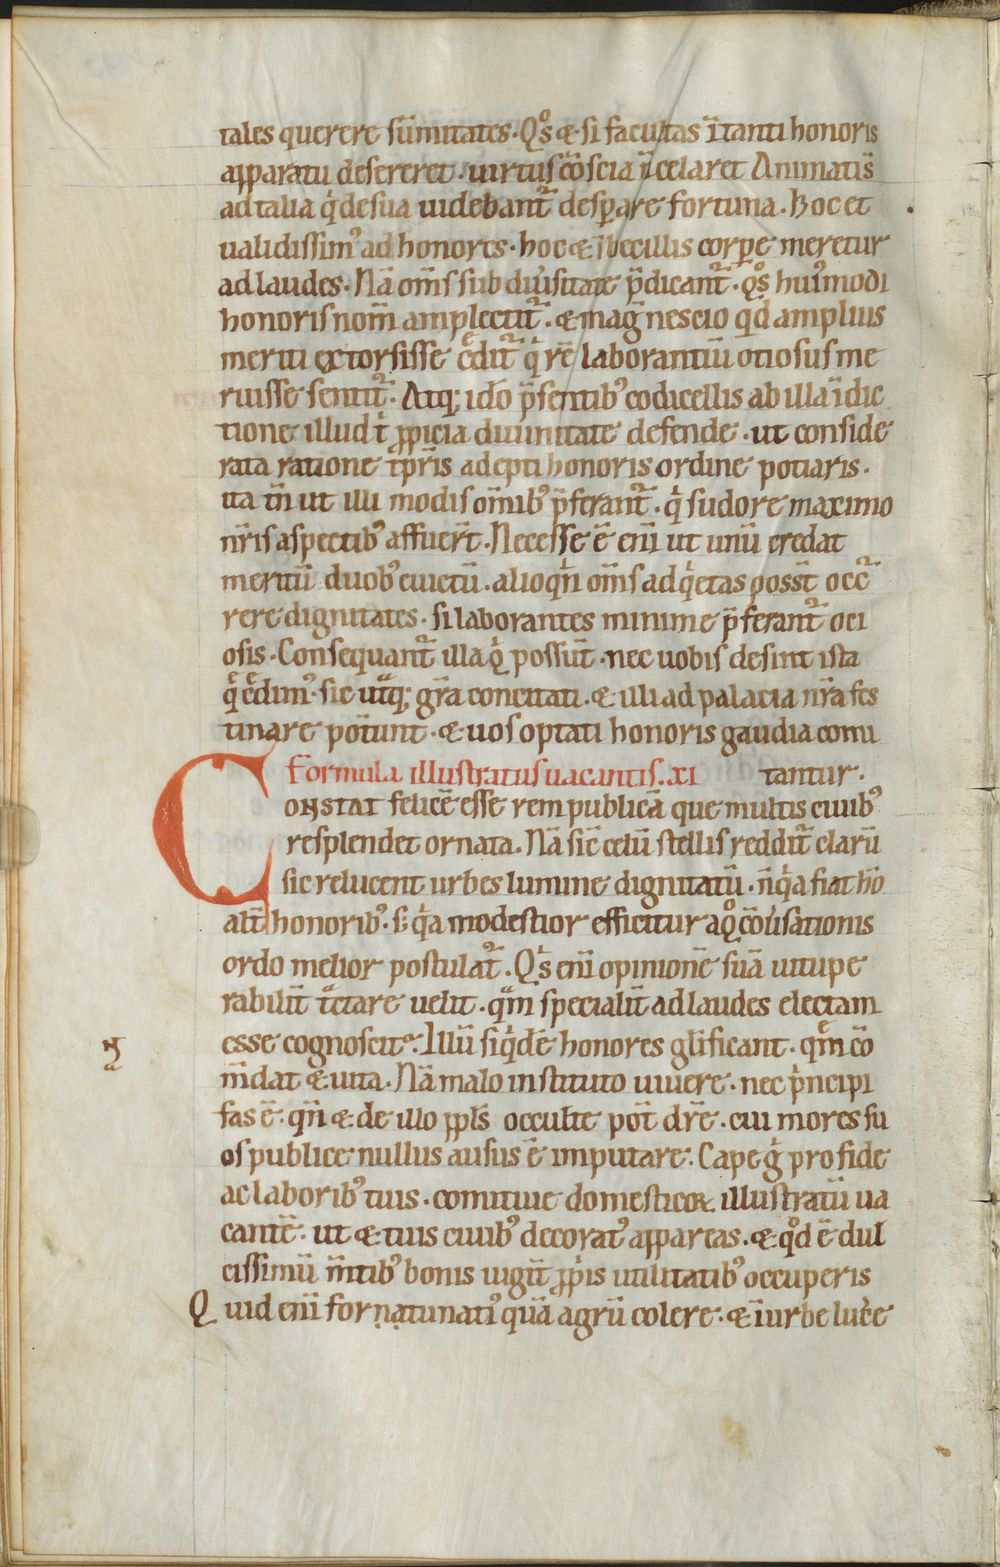 tales querere sūmitates. Qͦs & si facultas ītanti honoris
apparatu desereret. uirtus cōscia īcelaret Animatis̄
ad talia q̇ de sua uidebant᷑ desꝑare fortuna. hoc et
ualidissimꝰ ad honores. hoc & ībecillis corꝑe meretur
ad laudes. Nā om̄s sub diuͥsitate p̄dicant᷑. qͦs huiꝰmodi
honoris nom̄ amplectit᷑. & mag̅ nescio qd̄ amplius
meriti extorsisse c̄dit᷑ q̇ rē laborantiū otiosus me
ruisse sentit᷑. Atq; idō p̄sentibꝰ codicellis ab illa īdic
tione illud t̄ ꝓpicia diuinitate defende. ut conside
rata ratione īpr̄is adepti honoris ordine potiaris.
ita tn̄ ut illi modis om̄ibꝰ p̄ferant᷑. q̇ sudore maximo
nr̄is aspectibꝰ affuer̄t. Necesse ē eni ut unū credat
meritū duobꝰ euictū. alioqn̄ om̄s ad q̇etas poss̄t occ᷑
rere dignitates. si laborantes minime p̄ferant᷑ oci
osis. Consequant᷑ illa q̇ possūt. nec uobis desint ista
q̄ c̄dimꝰ. sic ut̄q; gr̄a concitati. & illi ad palatia nr̄a fes
tinare pot̄unt. & uos optati honoris gaudia comi
tantur.
formula illustratus uacantis. xi
CONSTAT felicē esse rem publicā que multis ciuibꝰ
resplendet ornata. Nā sic̄ celū stellis reddit᷑ clarū
sic relucent urbes lumine dignitatū. n̄ q̇a fiat hō
alt̄ honoribꝰ. s; q̇a modestior efficitur a qͦ cōuͥsationis
ordo melior postulat᷑. Qͥs eni opinionē suā uitupe
rabilit̄ t̄ctare uelit. qᵃm specialit̄ ad laudes electam
esse cognoscit. Illū siq̇dē honores gl̄ificant. qm̄ cō
m̄dat & uita. Nā malo instituto uiuere. nec pͥncipi
fas ē. qn̄ & de illo ppl̄s occulte pot̄ dr̄e. cui mores su
os publice nullus ausus ē imputare. Cape gͥ pro fide
ac laboribꝰ tuis. comitiue domesticoꝝ illustratū ua
cantē. ut & tuis ciuibꝰ decoratꝰ appareas. & qͦd ē dul
cissimū m̄tibꝰ bonis uigit̄ ꝓpͥis utilitatibꝰ occuperis
Quid eni fornatunatiꝰ quā agrū colere. & ī urbe luc̄e